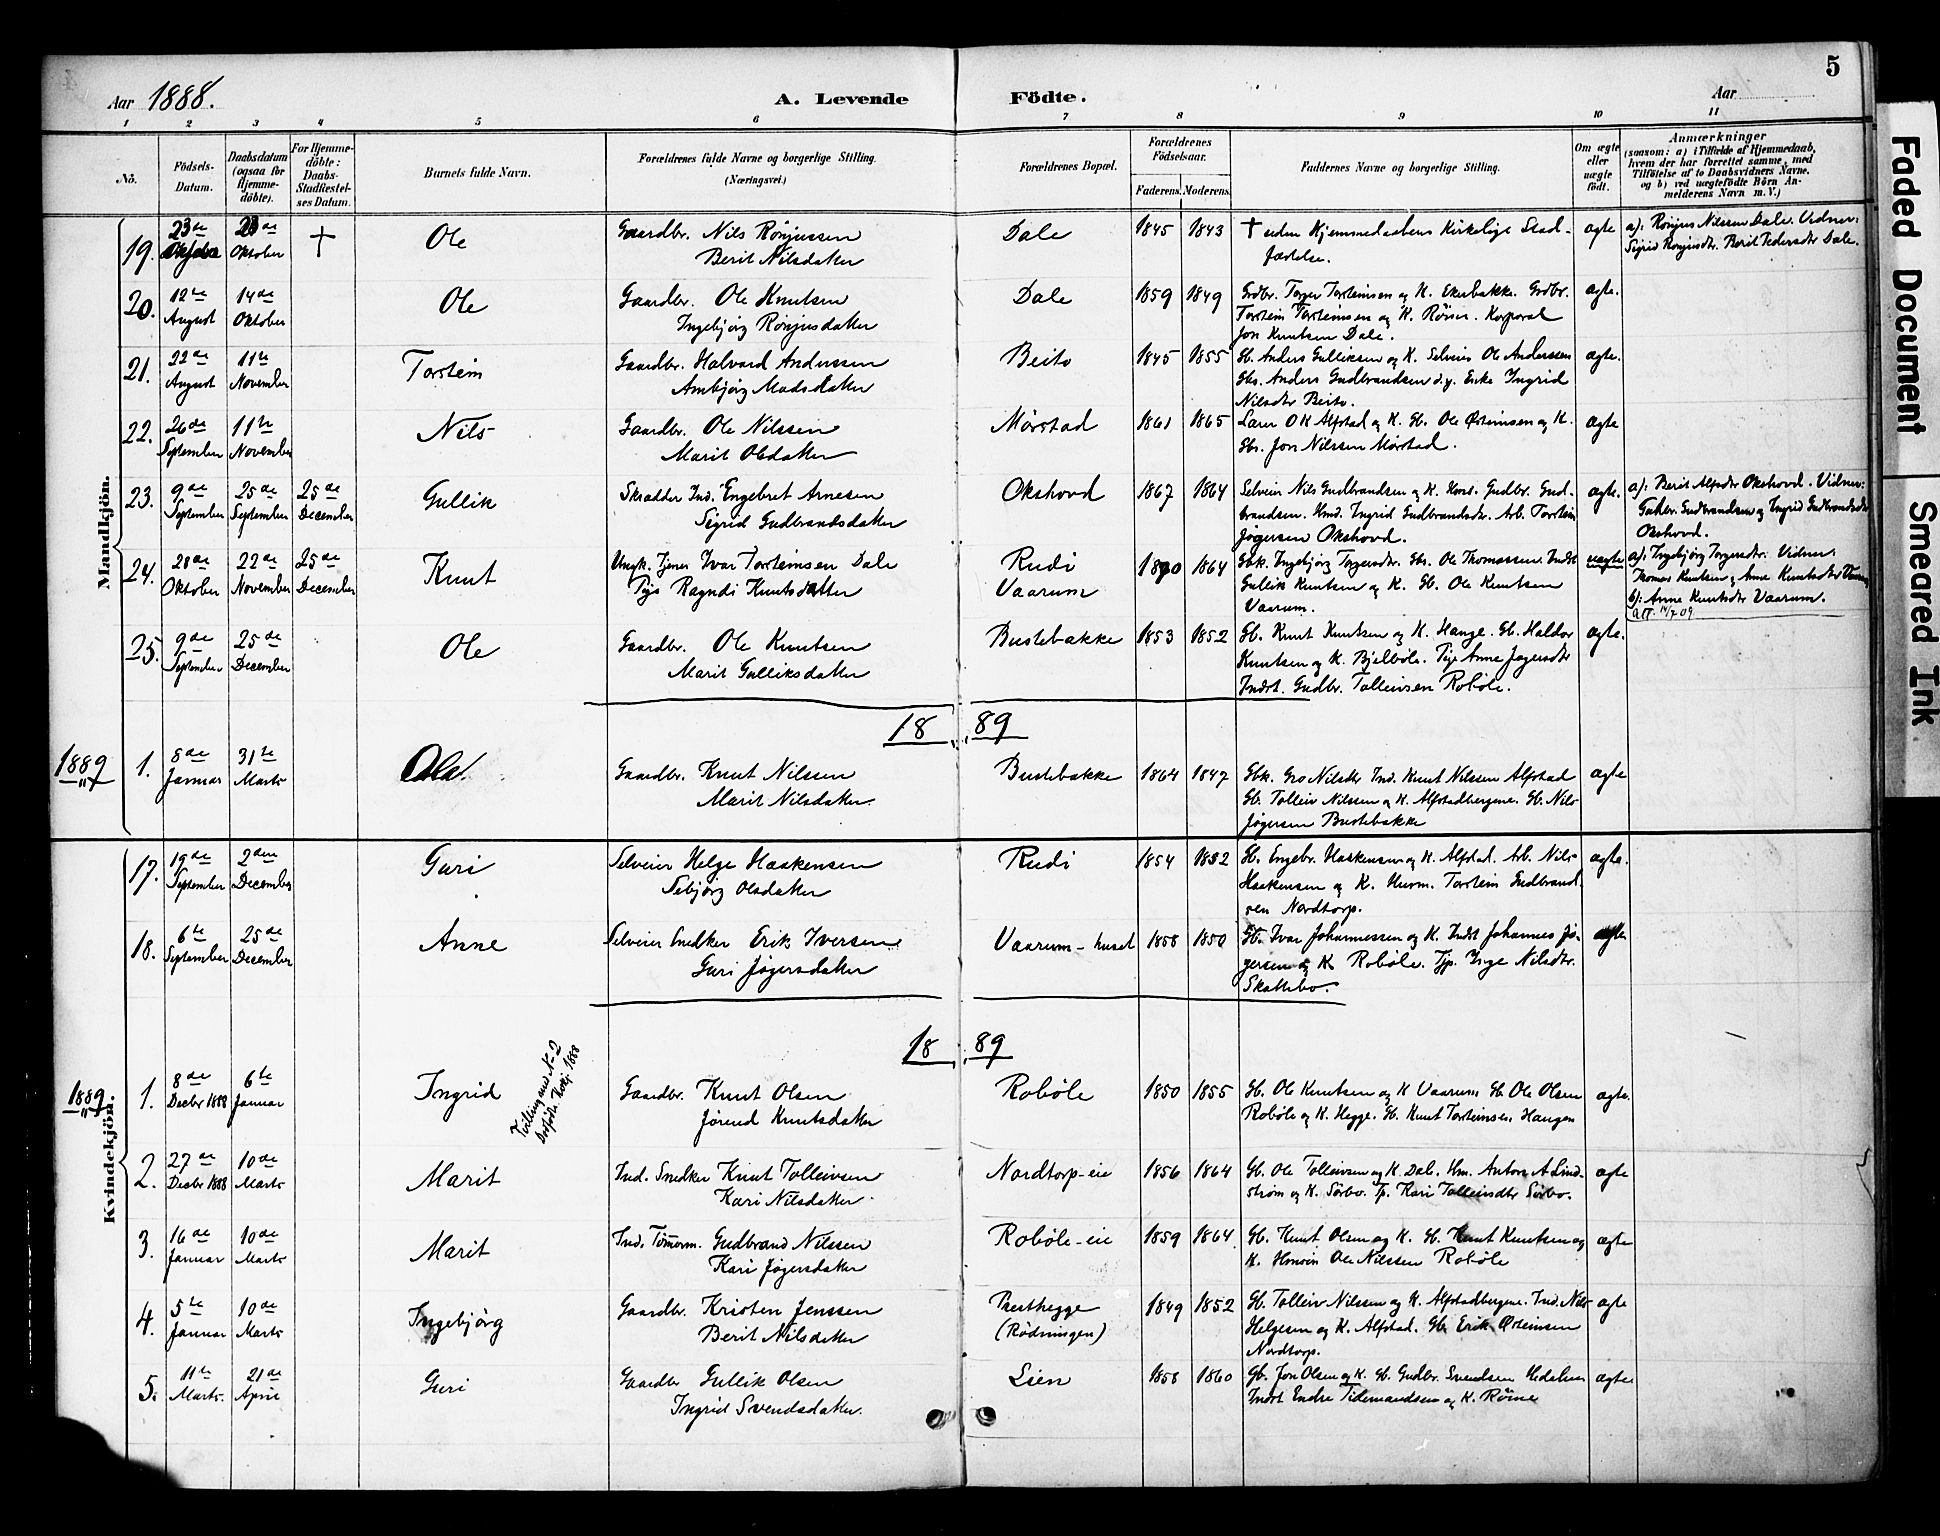 5
Aar 1888.
A. Levende Födte.
Aar
1 2 3 4 5 6 7 8 9 10 11
No.
Födsels-Datum.
Daabsdatum (ogsaa for Hjemmedöbte).
For Hjemmedöbte: Daabs-Stadfæstelses Datum.
Barnets fulde Navn.
Forældrenes fulde Navne og borgerlige Stilling.
(Næringsvei.)
Forældrenes Bopæl.
Forældrenes Födselsaar.
Faderens. Moderens.
Faddernes Navne og borgerlige Stilling.
Om ægte eller uægte födt.
Anmærkninger
(saasom: a) i Tilfælde af Hjemmedaab, hvem der har forrettet samme, med Tilföielse af to Daabsvidners Navne, og b) ved uægtefödte Börn Anmelderens Navn m. V.)
Mandkjön.
19. 23de Oktober 28de Oktober † Ole Gaardbr. Nils Rönjussen Dale 1845 1843 † uden Hjemmedaabens Kirkelige Stad- ægte a): Rönjus Nilssen Dale. Vidner:
Berit Nilsdatter fæstelse. Sigrid Rönjusdtr. Berit Pedersdtr Dale.
20. 12te August 14de Oktober Ole Gaardbr. Ole Knutsen Dale 1859 1849 Grdbr. Torger Torsteinsen og K. Ekrebakke. Grdbr. ægte.
Ingebjörg Rönjusdatter Torstein Torsteinsen og K. Röien. Korporal
Jon Knutsen Dale.
21. 22de August 11te November Torstein Gaardbr. Halvard Anderssen Beito 1845 1855 Gb. Anders Gulliksen og K. Selveier Ole Anderssen ægte.
Ambjörg Madsdatter Gbs. Anders Gudbrandsen d.y. Enke Ingrid
Nilsdtr Beito.
22. 26de September 11te November Nils Gaardbr. Ole Nilssen Mörstad 1861 1865 Lærer O K Alfstad og K. Gb. Ole Östeinsen og K. ægte
Marit Olsdatter Gbs. Jon Nilssen Mörstad.
23. 9de September 25de September 25de December Gullik Skrædder Ind. Engebret Arnesen Okshovd 1867 1864 Selveier Nils Gudbrandsen og K. Hmd. Gudbr. Gud- ægte. a): Berit Alfsdtr Okshovd. Vidner:
Sigrid Gudbrandsdatter brandsen. Hmd. Ingrid Gudbrandsdtr. Arb. Torstein Gudbr. Gudbrandsen og Ingrid Gudbrandsdtr
Jögersen Okshovd. Okshovd.
24. 28de Oktober 22de November 25de December Knut Ungk. Tjener Ivar Torsteinsen Dale Rudi 1870 1864 Gbk. Ingebjörg Torgersdtr. Gbs. Ole Thomassen. Indst uægte a): Ingebjörg Torgersdtr. Vidner:
Pige Ragndi Knutsdatter Vaarum Gullik Knutsen og K. Gb. Ole Knutsen Thomas Knutsen og Anne Knutsdtr Vaarum
Vaarum. b): Anne Knutsdtr Vaarum.
att. 14/7 09
25. 9de September 25de December Ole Gaardbr. Ole Knutsen Bustebakke 1853 1852 Gb. Knut Knutsen og K. Hauge. Gb. Haldor ægte.
Marit Gulliksdatter Knutsen og K. Bjelböle. Pige Anne Jögersdtr
Indst. Gudbr. Tolleivsen Roböle.
18 89
1889 1. 8de Januar 31te Marts Ola. Gaardbr. Knut Nilssen Bustebakke 1864 1847 Gbk. Gro Nilsdtr Ind. Knut Nilssen Alfstad ægte
Marit Nilsdatter Gb. Tolleiv Nilssen og K. Alfstadbergene. Gb. Nils
Jögersen Bustebakke
Kvindekjön.
17. 19de September 2den December Guri Selveier Helge Haakensen Rudi 1854 1852 Gb. Engebr. Haakensen og K. Alfstad. Arb. Nils ægte.
Sebjörg Olsdatter Haakensen og K. Hurm. Torstein Gudbrand-
sen Nordtorp.
18. 6te September 25de December Anne Selveier Snedker Erik Iversen Vaarum-huset 1858 1850 Gb. Ivar Johannessen og K. Indst Johannes Jö- ægte
Guri Jögersdatter gersen og K Roböle. Tjp. Inge Nilsdtr.
Skattebo.
18 89
1889 1. 8de Decbr 1888 6te Januar Ingrid Tvilling med N-2 Dödfödte Kvkj 1888 Gaardbr. Knut Olsen Roböle 1850 1855 Gb. Ole Knutsen og K Vaarum Gb Ole Olsen ægte.
Jörend Knutsdatter Roböle og K. Hegge. Gb. Knut Torsteinsen Haugen
2. 27de Decbr 1888 10de Marts Marit Ind. Snedker Knut Tolleivsen Nordtorp-eie 1856 1864 Gb. Ole Tolleivsen og K. Dal. Hm. Anton A Lind- ægte
Kari Nilsdatter ström og K. Sörbo. Tp. Kari Tolleivsdtr Sörbo.
3. 16de Januar 10de Marts Marit Ind. Tömerm. Gudbrand Nilssen Roböle-eie 1859 1864 Gb. Knut Olsen og K. Gb. Knut Knutsen og ægte
Kari Jögersdatter K. Ole Nilssen Roböle
4. 5te Januar 10de Marts Ingebjörg Gaardbr. Kristen Jenssen Præsthegge 1849 1852 Gb. Tolleiv Nilssen og K. Alfstadbergene. Ind. Nils ægte
Berit Nilsdatter (Rödningen) Helgesen og K. Alfstad. Gb. Erik Östeinsen
Nordtorp.
5. 11te Marts. 21de April Guri Gaardbr Gullik Olsen Lien 1858 1860 Gb. Jon Olsen og K. Gb. Gudbr. Svendsen Hedalen ægte
Ingrid Svendsdatter. Indst Endre Tidemandsen og K. Röine
Faded Document
Smeared Ink